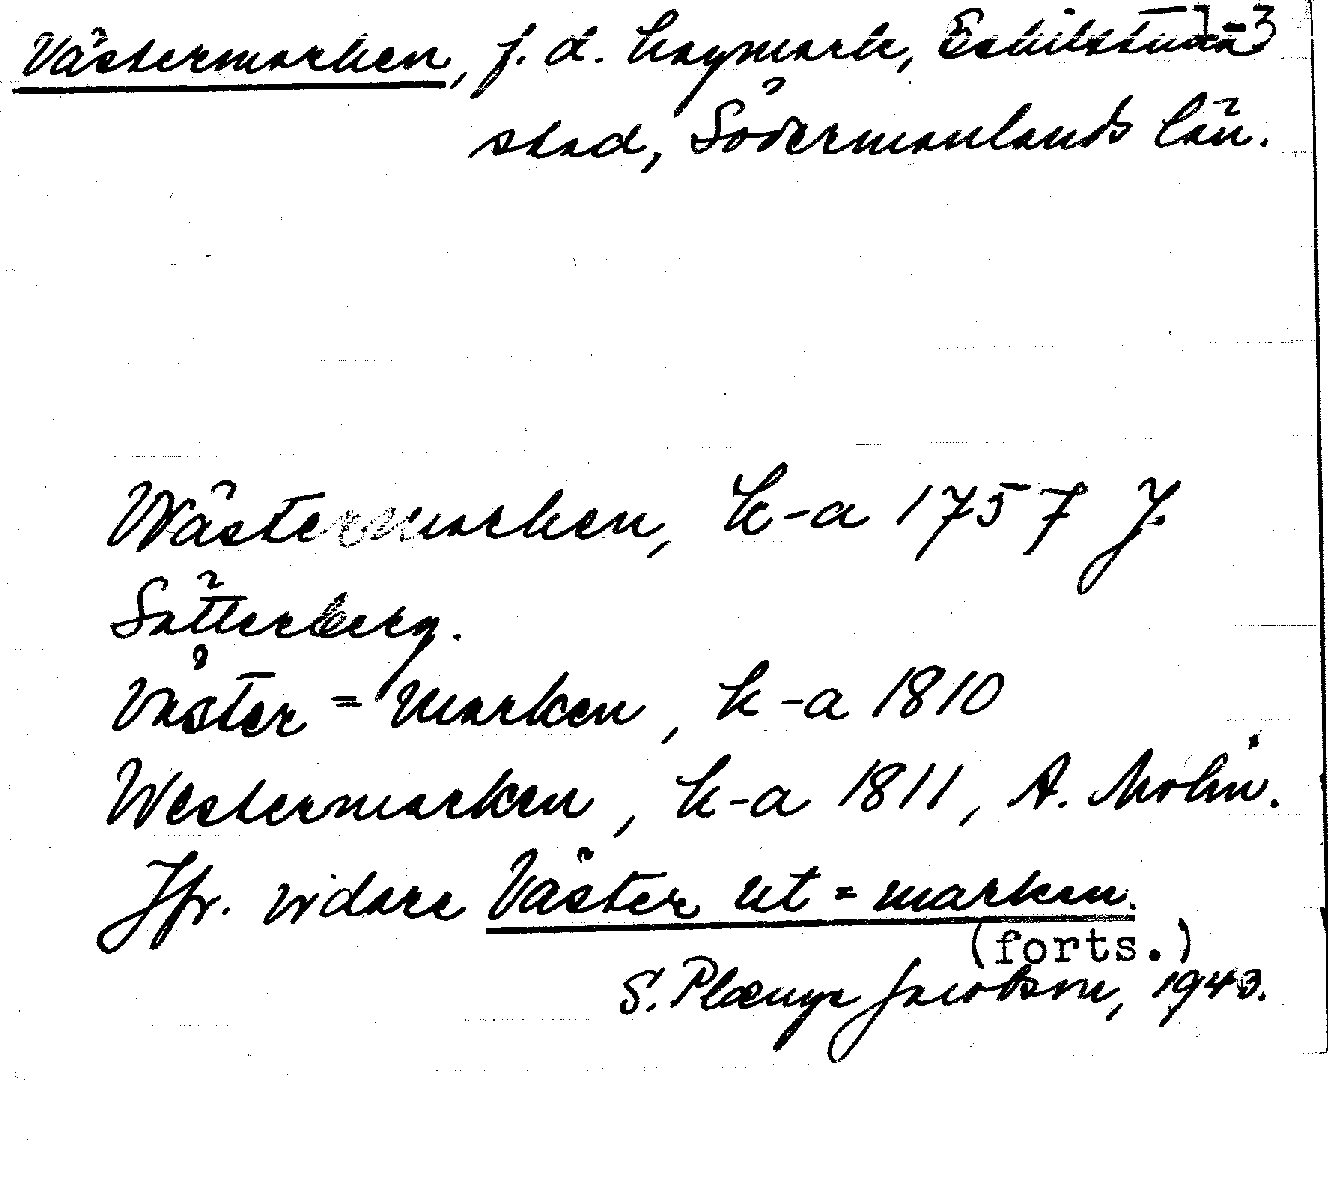 Västermarken, f. d. hagmark, Eskilstuna 1-3
stad, Södermanlands län.
Wästermarken, k-a 1757 J.
Sätterberg.
Väster=marken, k-a 1810
Westermarken, k-a 1811, A. Molin.
Jfr. vidare Väster ut=marken.
(forts.)
S. Plænge Jacobson, 1943.